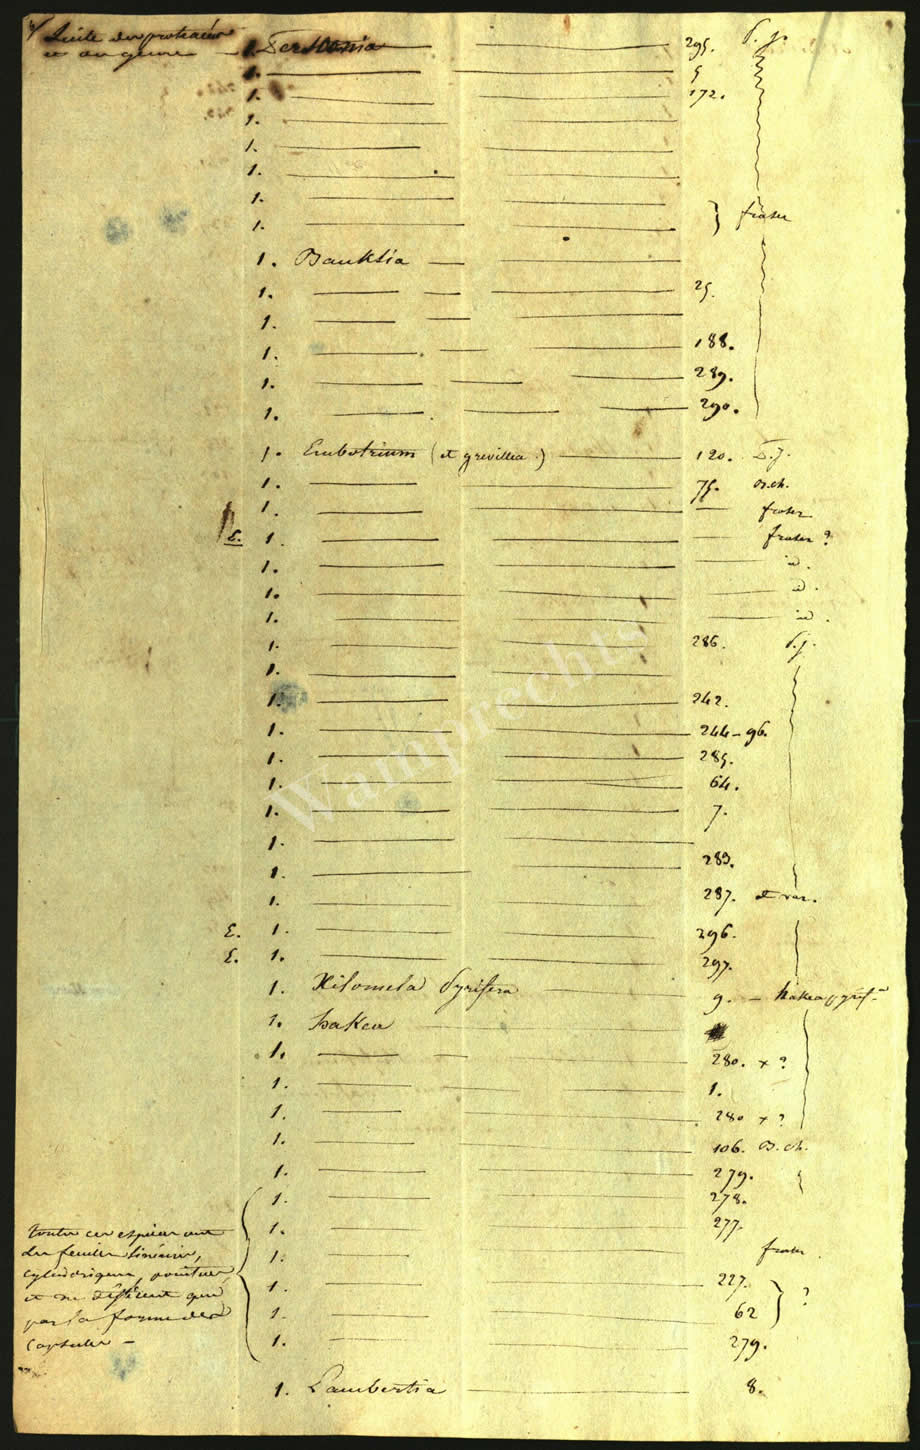 Suite des proteacées
1. Persoonia 295. P. j.
1. 5
1. 172.
1.
1.
1.
1.
1. } fraser
1. Banksia
1. 25.
1.
1. 188.
1. 289.
1. 290.
1. Embotrium (et grevillea.) 120. P. j.
1. 75. B. ch.
1. — fraser
E. 1. — fraser ?
1. — id.
1. — id.
1. — id.
1. 286. P. j.
1.
1. 242.
1. 244-96.
1. 285.
1. 64.
1. 7.
1.
1. 283.
1. 287. et var.
E. 1. 296.
E. 1. 297.
1. Xilomela Pyrifera 9. — hakea pyrif.a
1. hakea
1. 280. x ?
1. 1.
1. 280 x ?
1. 106. B. ch.
1. 279.
1. 278.
1. 277.
1. fraser
1. 227. } ?
1. 62
1. 279.
toutes ces espèces ont
des feuilles linéaires,
cylindriques, pointues,
et ne diffèrent que
par la forme des
Capsules —
1. Lambertia 8.
Wamprechts